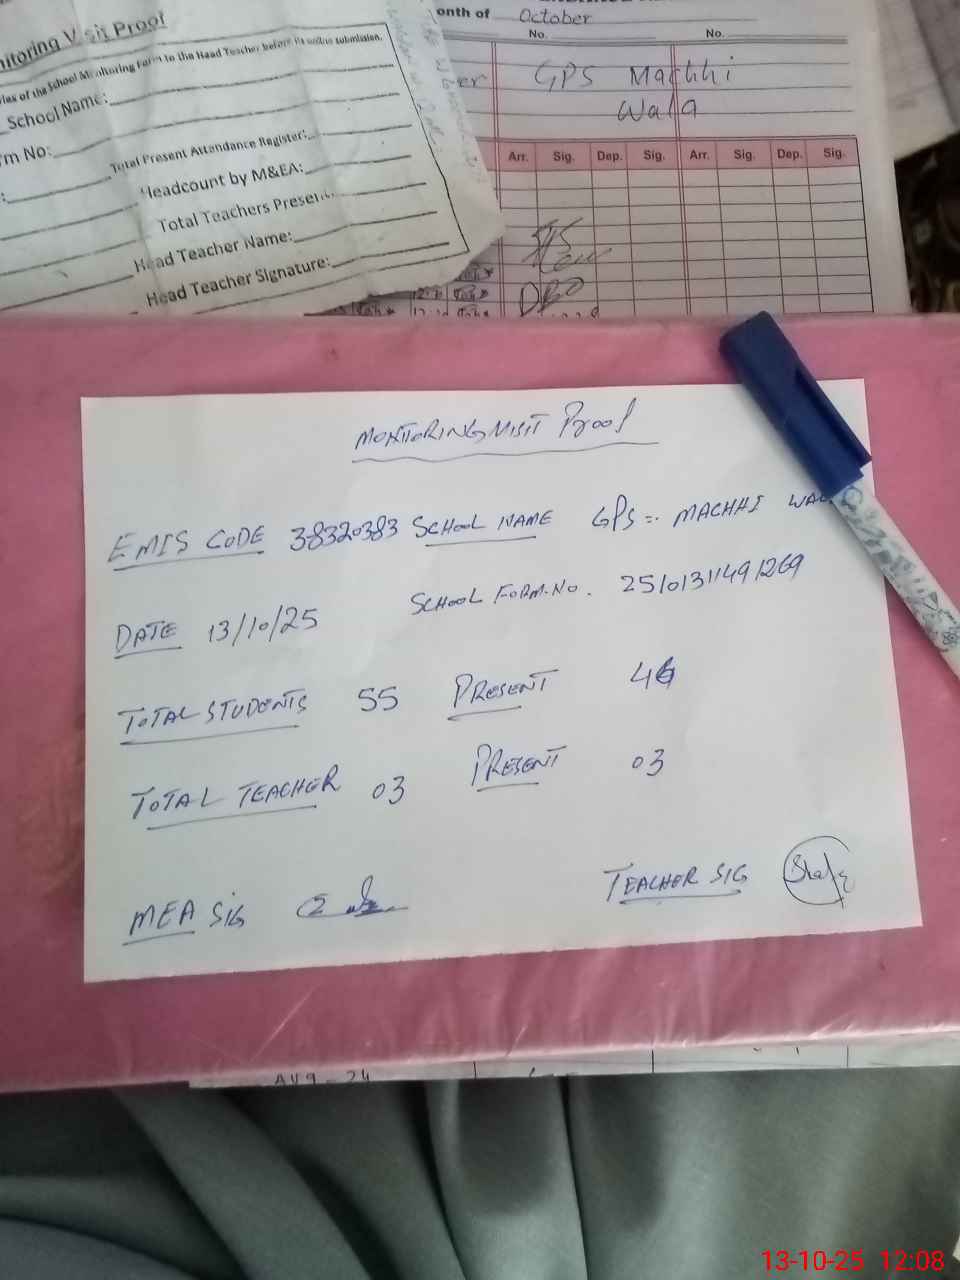 Visit Proof
of the School Monitoring Form to the Head Teacher before its online submission.
School Name:
Form No:
Total Present Attendance Register:
Headcount by M&EA:
Total Teachers Present:
Head Teacher Name:
Head Teacher Signature:
onth of October
No. No.
GPS Machhi
Wala
Arr. Sig. Dep. Sig. Arr. Sig. Dep. Sig.
MONITORING VISIT Proof
EMIS CODE 38320383 SCHOOL NAME GPS MACHHI
DATE 13/10/25 SCHOOL FORM.NO. 25101311491269
TOTAL STUDENTS 55 PRESENT
TOTAL TEACHER 03 PRESENT 03
MEA SIG TEACHER SIG
AUG-24
13-10-25 12:08